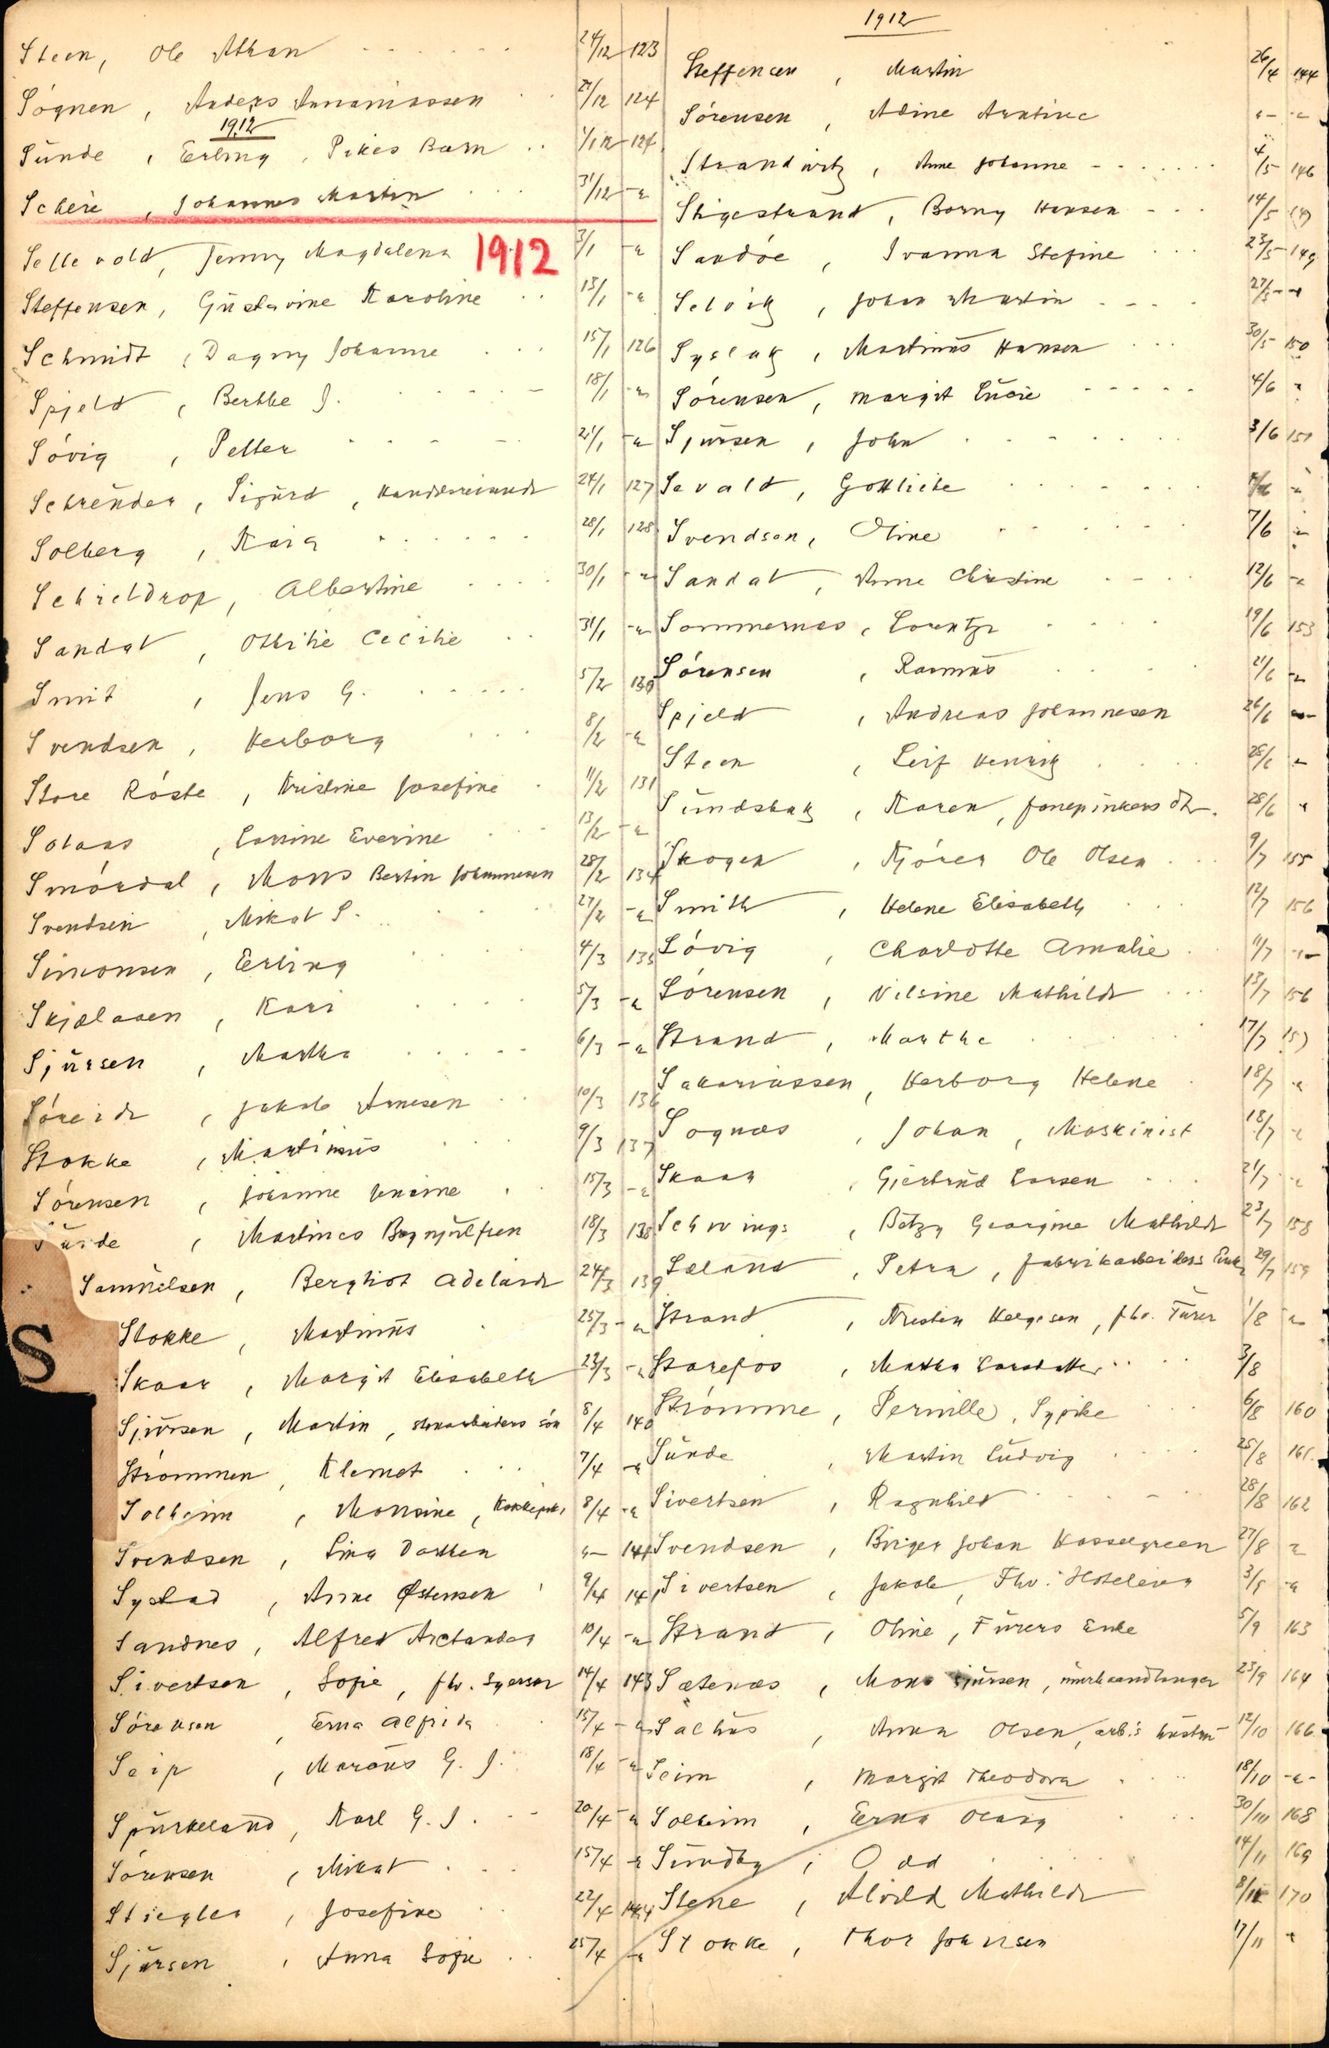 Steen, Ole Johan 24/12 123
Sögnen, Anders Annaniassen 24/12 124
1912
Sünde, Erling, Pikes Barn 1/1 12 124
Schere, Johannes Martin 31/12 -"
Sellevold, Jenny Magdalena 1912 3/1 -"
Steffensen, Güstavine Karoline 13/1 -"
Schmidt, Dagny Johanne 15/1 126
Spjeld, Berthe J. 18/1 -"
Sövig, Petter 21/1 -"
Schrender, Sigürd, 24/1 127
Solberg, Kaia 28/1 128
Schieldrop, Albertine 30/1 -"
Sandal, Othilie Cecilie 31/1 -"
Smit, Jens G. 5/2 130
Svendsen, Herborg 8/2 -"
Store Röste, Kristine Josefine 11/2 131
Solaas, Lovine Everine 13/2 -"
Smördal, Mons Bertin Johannesen 28/2 134
Svendsen, Mikal S. 27/2 -"
Simonsen, Erling 4/3 135
Skjelaaen, Kari 5/3 -"
Sjürsen, Martha 6/3 -"
Söreide, Jakob Arnesen 10/3 136
Stokke, Martinüs 9/3 137
Sörensen, Johanne Jensine 15/3 -"
Sünde, Martines Brynjülfsen 18/3 138
Samüelsen, Bergliot Adelaide 24/3 139
Stokke, Martinüs 25/3 -"
Skaar, Margit Elisabeth 23/3 -"
Sjürsen, Martin, stenarbeiders sön 8/4 140
Strömmen, Klemet 7/4 -"
Solheim, Monsine, 8/4 -"
Svendsen, Lina Dorthea "- 141
Systad, Anne Østensen 9/4 141
Sandnes, Alfred Arctander 10/4 -"
Sivertsen, Sofie, fhv. Syerser 14/4 143
Sörensen, Erna Alfrida 15/4 -"
Seip, Marcüs G. J. 18/4 -"
Spürkeland, Karl G. J. 20/4 -"
Sörensen, Mikal 15/4 -"
Stiegler, Josefine 22/4 144
Sjürsen, Anna Sofie 25/4 -"
S
1912
Steffensen, Martin 26/4 144
Sörensen, Adine Arntine "- -"
Strandvik, Anne Johanne 4/5 146
Stigestrand, Borny Hansen 14/5 147
Sandöe, Ivanna Stefine 23/5 149
Selvik, Johan Martin 27/5 -"
Syslak, Martinüs Hansen 30/5 150
Sörensen, Margit Lüsie 4/6 "
Sjürsen, John 3/6 151
Sevald, Gottliebe "
Svendsen, Oline 7/6 "
Sandal, Anne Christine 12/6 -"
Sommernes, Lorentz 19/6 153
Sörensen, Rasmüs 21/6 -"
Spjeld, Andreas Johannesen 26/6 -"
Steen, Leif Henrik 25/6 -"
Sündsbak, Karen, 28/6 "
Skogen, Ole Olsen 9/7 155
Smith, Helene Elisabeth 12/7 156
Sövig, Charlotte Amalie 11/7 -"
Sörensen, Nilsine Mathilde 13/7 156
Strand, Marthe 17/7 157
Sakariassen, Herborg Helene 18/7 "
Sognæs, Johan, Maskinist 18/7 "
Skaar, Gjertrüd Larsen 21/7 "
Schwings, Betzy Georgine Mathilde 23/7 158
Sæland, Petra, fabrikarbeiders Enke 29/7 159
Strand, Kristen Helgesen, fhv. Fürer 1/8 -"
Storefos, Martha Larsdatter 3/8
Strömme, Pernille, Sypike 6/8 160
Sünde, Martin Lüdvig 25/8 161
Sivertsen, Ragnhild 28/8 162
Svendsen, Birger Johan Hasselgreen 27/8 "
Sivertsen, Jakob, Fhv. Hoteleier 3/9 -"
Strand, Oline, Fürers Enke 5/9 163
Sætenæs, Mons Sjürsen, mürhaandlanger 23/9 164
Sælhüs, Anna Olsen, arb.s hüstrü 12/10 166
Seim, Margit Theodora 18/10 -"-
Solheim, Erna Olava 30/10 168
Sündby, Odd 14/11 169
Stene, Alvild Mathilde 8/11 170
Stokke, Thor Johnsen 17/11 "